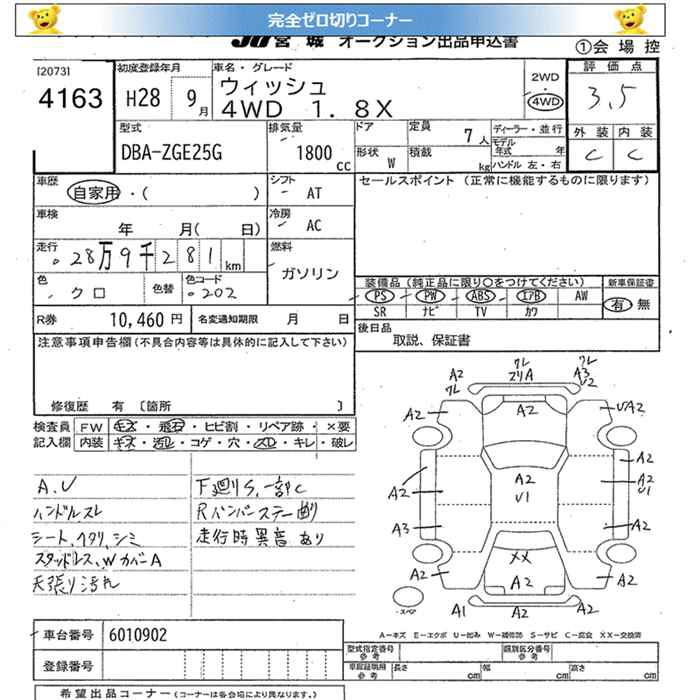 完全ゼロ切りコーナー
JU 宮城 オークション出品申込書
①会場控
[2073]
4163
初度登録年月
H28 9月
車名・グレード
ウィッシュ
4WD 1.8X
2WD
・
4WD
評価点
3.5
外装 内装
C C
型式
DBA-ZGE25G
排気量
1800 cc
ドア
定員
7人
形状
W
積載
kg
ディーラー・並行
モデル年式 年
ハンドル 左・右
車歴
自家用・( )
シフト
AT
セールスポイント (正常に機能するものに限ります)
車検
年 月( 日)
冷房
AC
走行
28万9千281km
燃料
ガソリン
色
クロ
色替
色コード
202
装備品 (純正品に限り○をつけてください)
新車保証書
PS PW ABS エアB AW
有 無
SR ナビ TV カワ
R券 10,460円
名変通知期限 月 日
後日品
取説、保証書
注意事項申告欄(不具合内容等は具体的に記入して下さい)
修復歴 有 〔箇所 〕
検査員 FW キズ・飛石・ヒビ割・リペア跡・×要
記入欄 内装 キズ・汚レ・コゲ・穴・スレ・キレ・破レ
A.U
ハンドルスレ
シート、ヘタリ、シミ
スタッドレス、WカバーA
天張り汚れ
下廻りS、一部C
Rバンパーステー曲り
走行時異音あり
A2 クレ
クレ スリA
クレ A3 U2
A2
A2
UA2
A2
A2 U1
A2
A2 U1
A3
A2
XX
A2
A2
A2
スペア
A1
A2
A2
A-キズ E-エクボ U-凹み W-補修跡 S-サビ C-腐食 XX-交換済
車台番号 6010902
型式指定番号 参考
類別区分番号 参考
登録番号
車庫証明用 参考
長さ cm
幅 cm
高さ cm
希望出品コーナー (コーナーは各会場により異なります。)